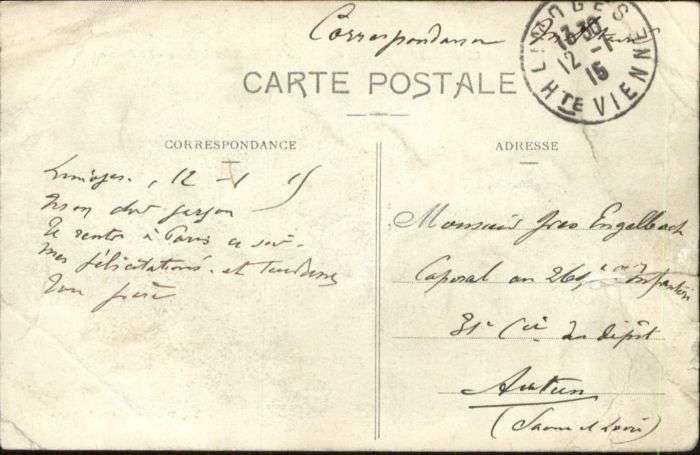 Correspondance Militaire
LIMOGES
13 30
12 -1
15
HTE VIENNE
CARTE POSTALE
CORRESPONDANCE
ADRESSE
Limoges, 12 - 1 15
Mon cher garçon
Je rentre à Paris ce soir.
Mes félicitations et tendresses
Ton père
Monsieur Engelbach
Caporal au Infanterie
31e Cie du dépôt
Autun
(Saone et Loire)